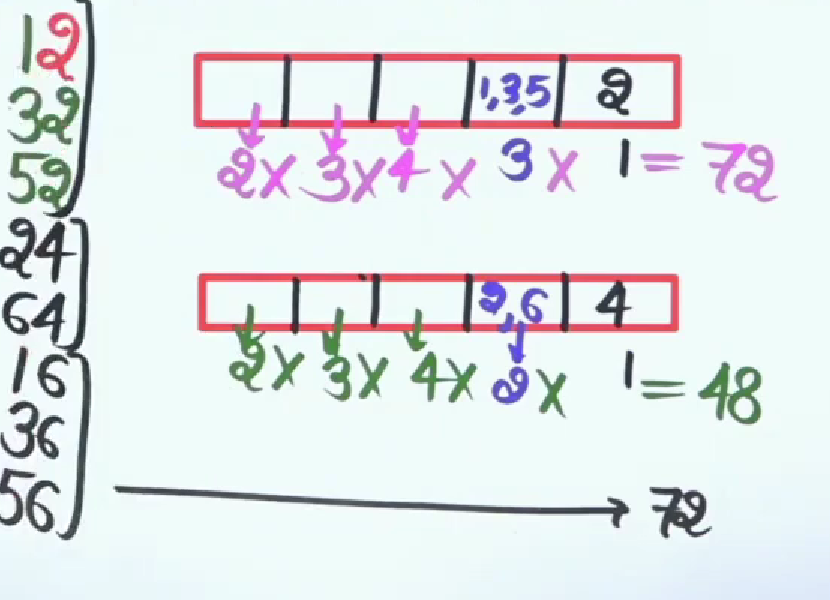 12
32
52
24
64
16
36
56
1,3,5 2
2 x 3 x 4 x 3 x 1 = 72
2,6 4
2 x 3 x 4 x 2 x 1 = 48
72